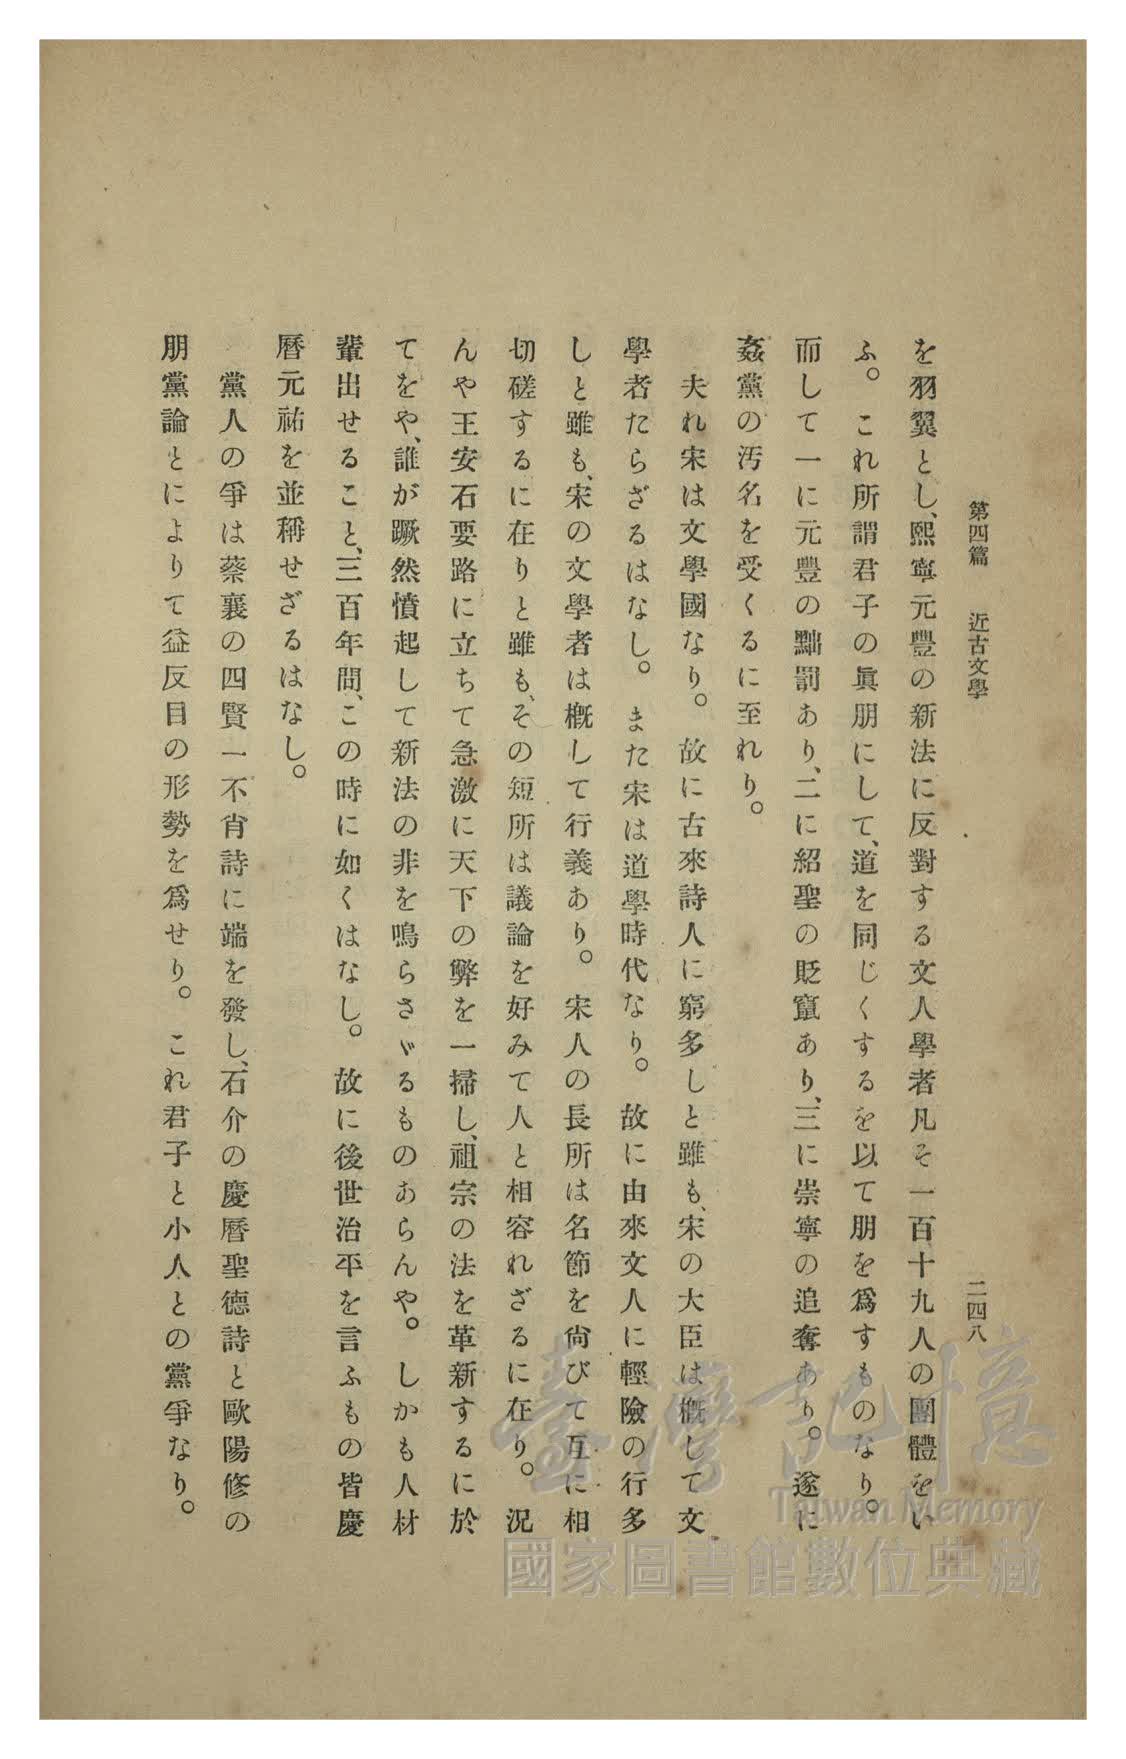 第四篇 近古文學 二四八
を羽翼とし、熙寧元豐の新法に反對する文人學者凡そ一百十九人の團體をい
ふ。これ所謂君子の眞朋にして、道を同じくするを以て朋を爲すものなり。
而して一に元豐の黜罰あり、二に紹聖の貶竄あり、三に崇寧の追奪あり。遂に
姦黨の汚名を受くるに至れり。
夫れ宋は文學國なり。故に古來詩人に窮多しと雖も、宋の大臣は概して文
學者たらざるはなし。また宋は道學時代なり。故に由來文人に輕險の行多
しと雖も、宋の文學者は概して行義あり。宋人の長所は名節を尙びて互に相
切磋するに在りと雖も、その短所は議論を好みて人と相容れざるに在り。況
んや王安石要路に立ちて急激に天下の弊を一掃し、祖宗の法を革新するに於
てをや、誰が蹶然憤起して新法の非を鳴らさゞるものあらんや。しかも人材
輩出せること、三百年間、この時に如くはなし。故に後世治平を言ふもの皆慶
曆元祐を並稱せざるはなし。
黨人の爭は蔡襄の四賢一不肖詩に端を發し、石介の慶曆聖德詩と歐陽修の
朋黨論とによりて益反目の形勢を爲せり。これ君子と小人との黨爭なり。
臺灣記憶
Taiwan Memory
國家圖書館數位典藏